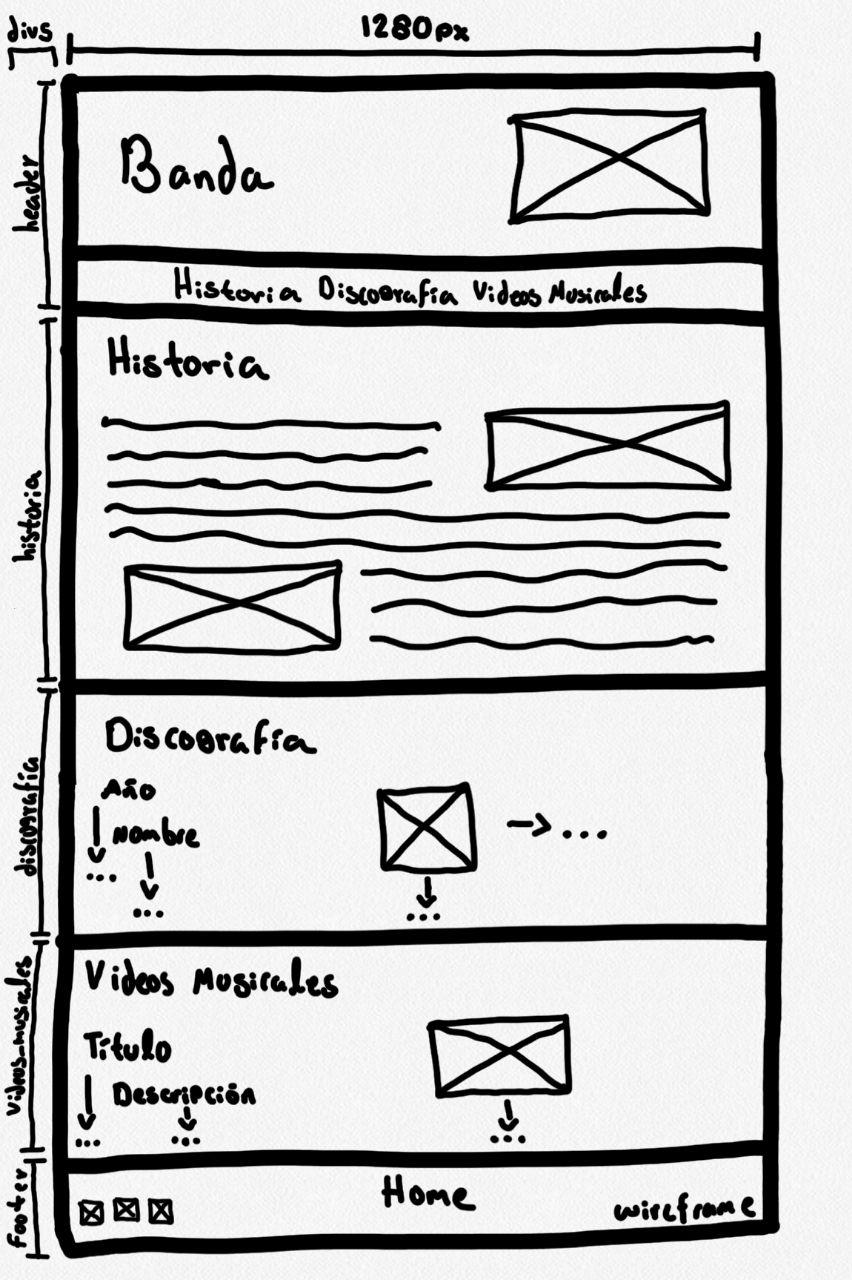 divs
1280px
header
Banda
Historia Discografía Videos Musicales
historia
Historia
discografía
Discografía
Año
Nombre
...
...
...
...
videos_musicales
Videos Musicales
Título
Descripción
...
...
...
footer
Home
wireframe